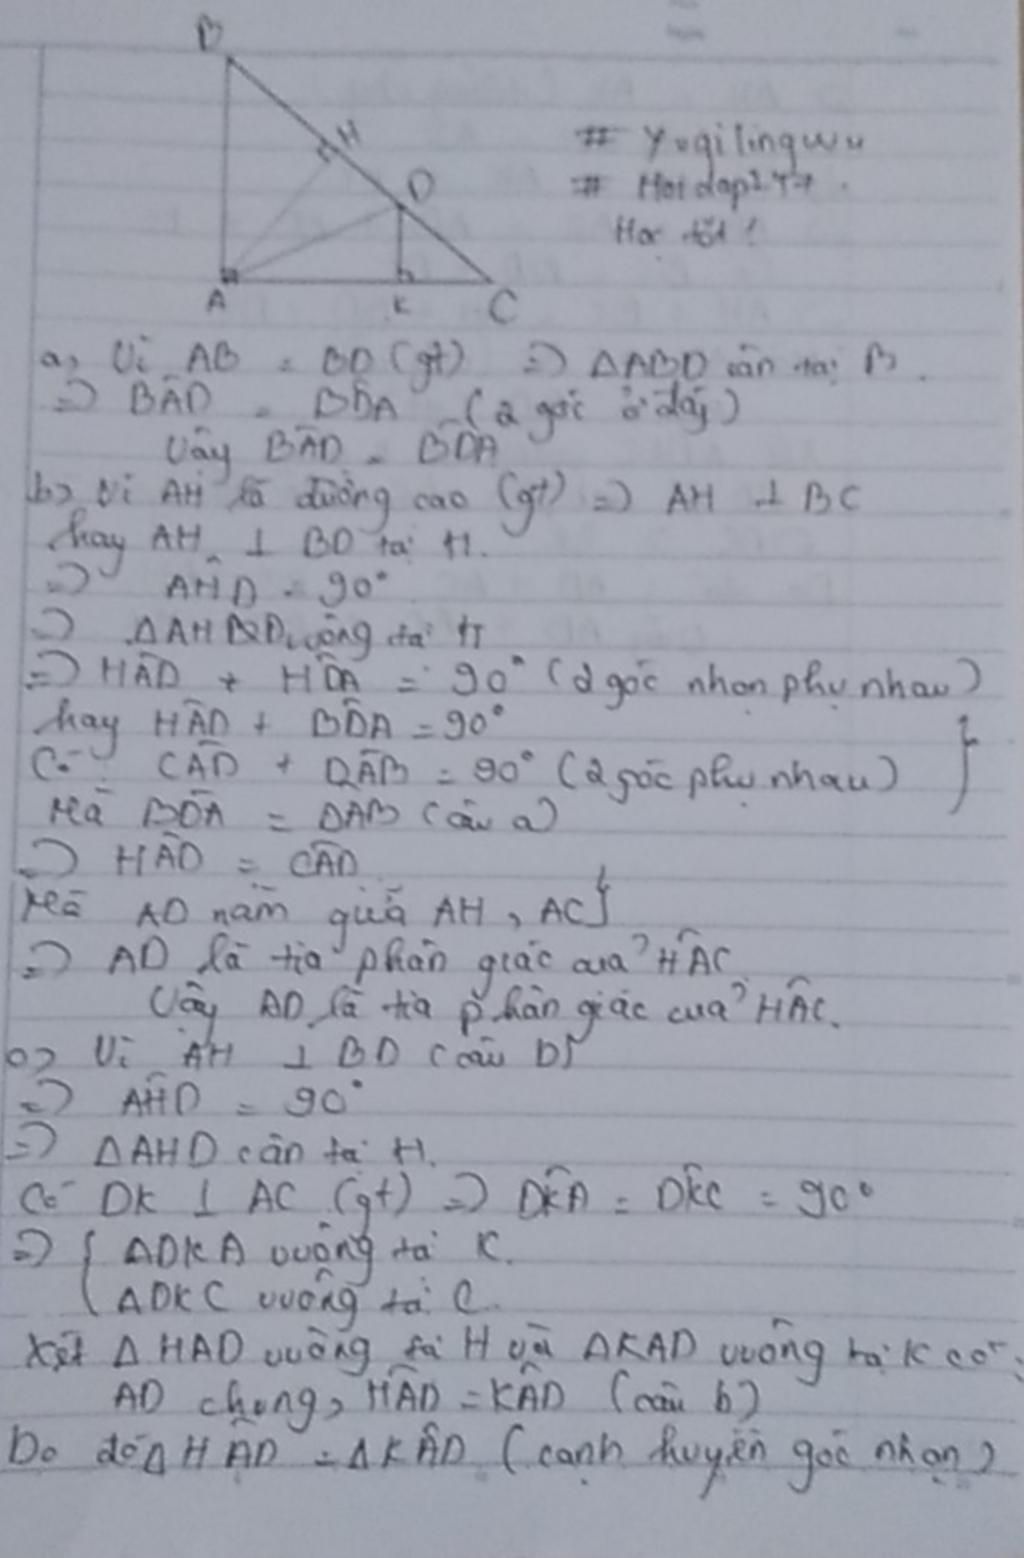 B
H
D
A
K
C
# Yugilingwu
# Hoidap247.
Học tốt!
a, Vì AB = BD (gt) => ΔABD cân tại B.
=> BÂD = BD̂A (2 góc ở đáy)
Vậy BÂD = BD̂A
b, Vì AH là đường cao (gt) => AH ⊥ BC
hay AH ⊥ BD tại H.
=> AĤD = 90°
=> ΔAHD vuông tại H
=> HÂD + HD̂A = 90° (2 góc nhọn phụ nhau)
hay HÂD + BD̂A = 90°
Có CÂD + DÂB = 90° (2 góc phụ nhau) }
Mà BD̂A = DÂB (câu a)
=> HÂD = CÂD
Mà AD nằm giữa AH, AC }
=> AD là tia phân giác của HÂC
Vậy AD là tia phân giác của HÂC.
c, Vì AH ⊥ BD (câu b)
=> AĤD = 90°
=> ΔAHD cân tại H.
Có DK ⊥ AC (gt) => DK̂A = DK̂C = 90°
=> { ΔDKA vuông tại K.
ΔDKC vuông tại C.
Xét ΔHAD vuông tại H và ΔKAD vuông tại K có:
AD chung, HÂD = KÂD (câu b)
Do đó ΔHÂD = ΔKÂD (cạnh huyền góc nhọn)